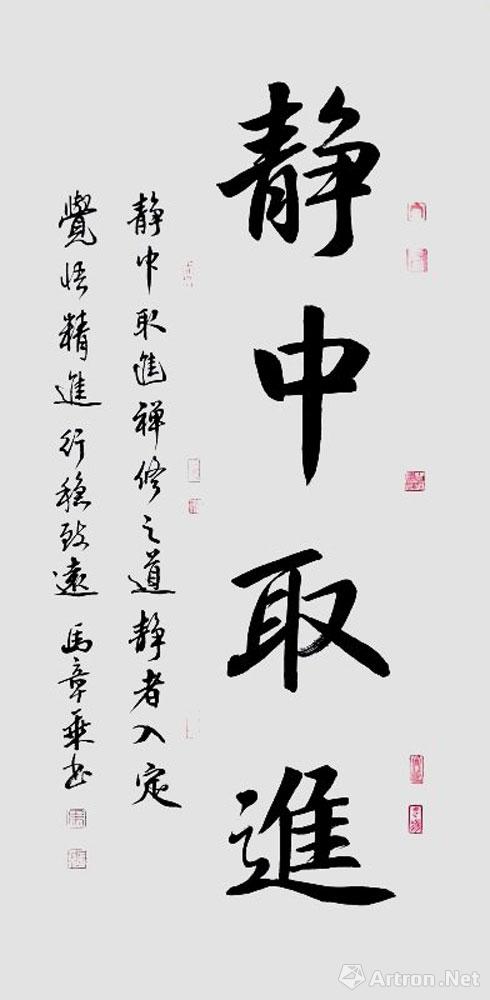 静中取進
静中取進禅修之道静者入定
覺悟精進行穩致遠馬章乘書
Artron.Net